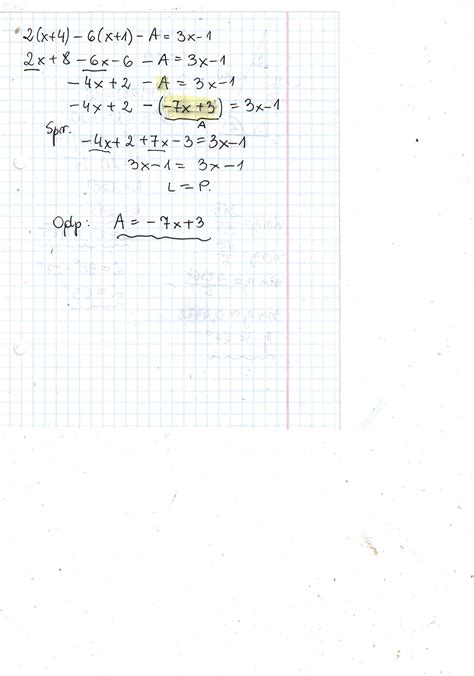 2(x+4) - 6(x+1) - A = 3x-1
2x + 8 - 6x - 6 - A = 3x-1
-4x + 2 - A = 3x-1
-4x + 2 - (-7x+3) = 3x-1
A
Spr.
-4x + 2 + 7x - 3 = 3x-1
3x-1 = 3x-1
L = P.
Odp: A = -7x+3